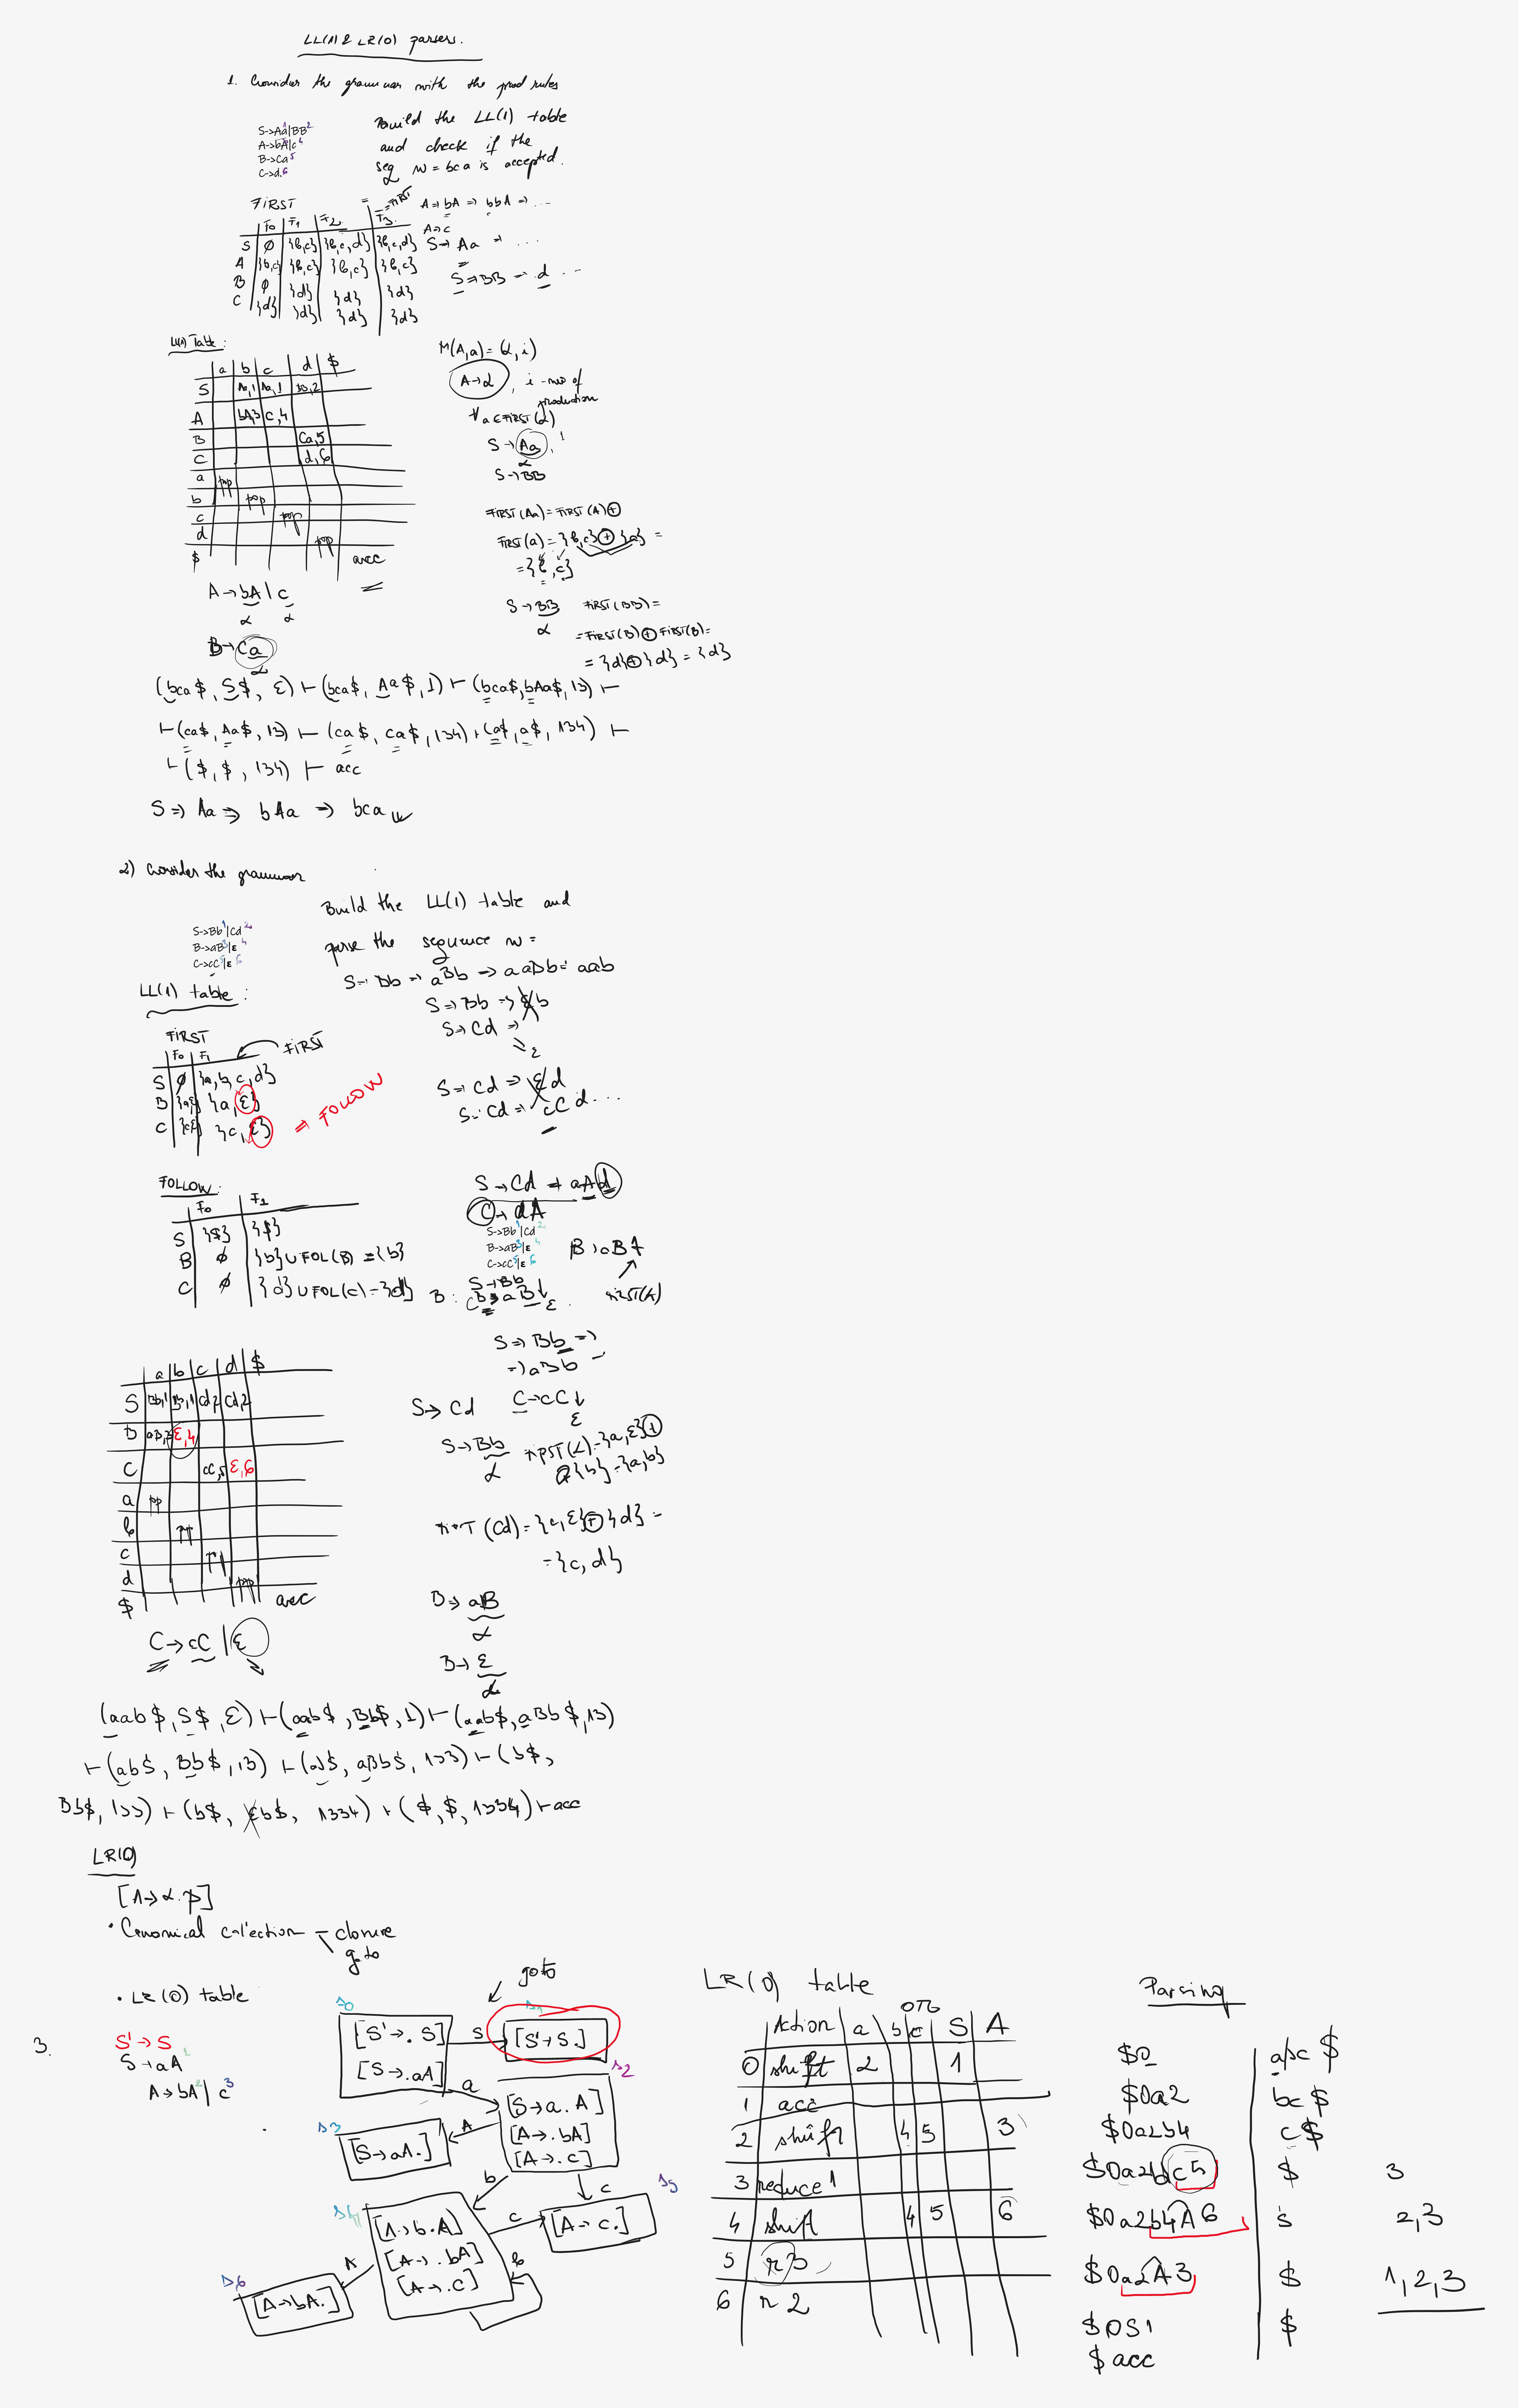 LL(1) & LR(0) parsers.
1. Consider the grammar with the prod rules
S->Aa¹|BB²
A->bA³|c⁴
B->Ca⁵
C->d.6
Build the LL(1) table
and check if the
seq w = bca is accepted.
FIRST
F0 F1 F2 F3 = FIRST
S ∅ {b,c} {b,c,d} {b,c,d}
A {b,c} {b,c} {b,c} {b,c}
B ∅ {d} {d} {d}
C {d} {d} {d} {d}
A => bA => bbA => ...
A => c
S -> Aa => ...
S => BB => d ...
LL(1) Table:
a b c d $
S Aa,1 Aa,1 BB,2
A bA,3 c,4
B Ca,5
C d,6
a pop
b pop
c pop
d pop
$ acc
M(A,a) = (α, i)
A->α, i - no of
production
∀ a ∈ FIRST(α)
S -> Aa, 1
α
S -> BB
FIRST(Aa) = FIRST(A) ⊕
FIRST(a) = {b,c} ⊕ {a} =
= {b,c}
A -> bA | c
α α
B -> Ca
α
S -> BB FIRST(BB) =
α = FIRST(B) ⊕ FIRST(B) =
= {d} ⊕ {d} = {d}
(bca$, S$, ε) ⊢ (bca$, Aa$, 1) ⊢ (bca$, bAa$, 13) ⊢
⊢ (ca$, Aa$, 13) ⊢ (ca$, ca$, 134) ⊢ (a$, a$, 134) ⊢
⊢ ($, $, 134) ⊢ acc
S => Aa => bAa => bca
2) Consider the grammar
S->Bb¹|Cd²
B->aB³|ε⁴
C->cC⁵|ε⁶
Build the LL(1) table and
parse the sequence w =
S => Bb => aBb => aaBb = aab
S => Bb => εb
S -> Cd =>
ε
LL(1) table:
FIRST
F0 F1 FIRST
S ∅ {a,b,c,d}
B {a,ε} {a,ε}
C {c,ε} {c,ε} => FOLLOW
S => Cd => εd
S => Cd => cCd...
FOLLOW:
F0 F1
S {$} {$}
B ∅ {b} ∪ FOL(B) = {b}
C ∅ {d} ∪ FOL(C) = {d}
S -> Cd => aAd
C -> dA
S->Bb¹|Cd²
B->aB³|ε⁴
C->cC⁵|ε⁶
B -> aBA
FIRST(A)
S -> Bb
B: B -> aB ε
S => Bb =>
=> aBb
S -> Cd C -> cC
ε
S -> Bb FIRST(α) = {a,ε} ⊕
α {b} = {a,b}
FIRST(Cd) = {c,ε} ⊕ {d} =
= {c,d}
a b c d $
S Bb,1 Bb,1 Cd,2 Cd,2
B aB,3 ε,4
C cC,5 ε,6
a pop
b pop
c pop
d pop
$ acc
B -> aB
α
B -> ε
α
C -> cC | ε
(aab$, S$, ε) ⊢ (aab$, Bb$, 1) ⊢ (aab$, aBb$, 13)
⊢ (ab$, Bb$, 13) ⊢ (ab$, aBb$, 133) ⊢ (b$,
Bb$, 133) ⊢ (b$, εb$, 1334) ⊢ ($, $, 1334) ⊢ acc
LR(0)
[A -> α.β]
• Canonical collection - closure
goto
• LR(0) table
3.
S' -> S
S -> aA¹
A -> bA² | c³
goto
s0
[S' -> .S]
[S -> .aA]
S
s1
[S' -> S.]
a
s2
[S -> a.A]
[A -> .bA]
[A -> .c]
A
s3
[S -> aA.]
b
c
s4
[A -> b.A]
[A -> .bA]
[A -> .c]
c
b
s5
[A -> c.]
A
s6
[A -> bA.]
LR(0) table
GOTO
Action a b c S A
0 shift 2 1
1 acc
2 shift 4 5 3
3 reduce 1
4 shift 4 5 6
5 r3
6 r2
Parsing
$0 abc $
$0a2 bc $
$0a2b4 c $
$0a2b4c5 $ 3
$0a2b4A6 $ 2,3
$0a2A3 $ 1,2,3
$0S1 $
$ acc